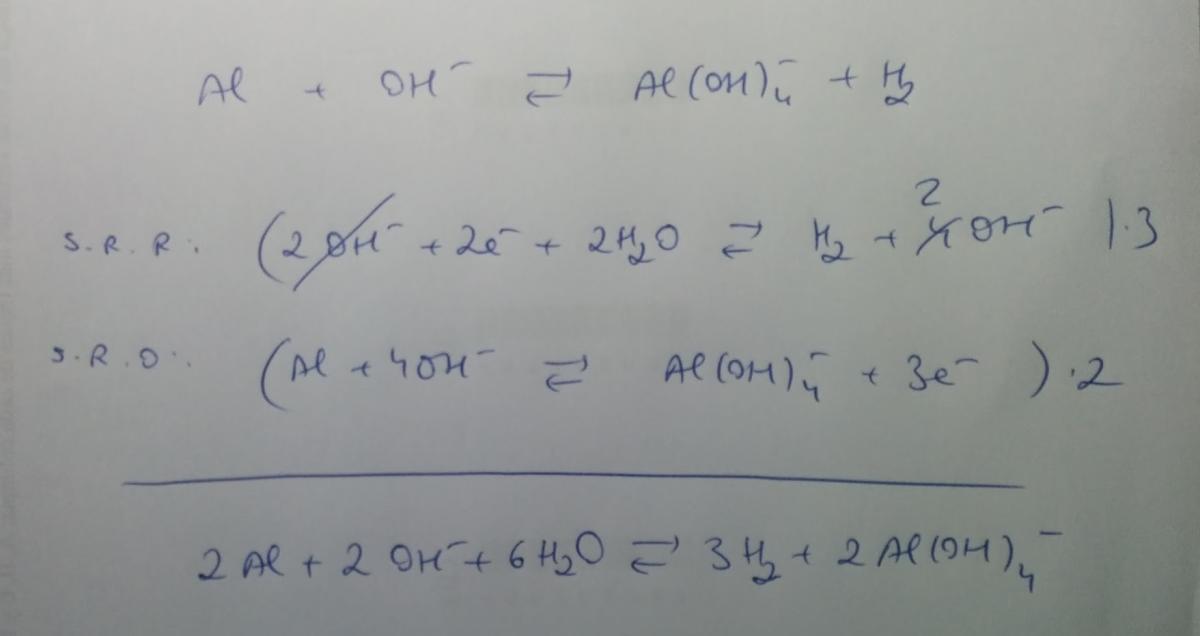 Al + OH⁻ ⇌ Al(OH)₄⁻ + H₂
S.R.R: (2OH⁻ + 2e⁻ + 2H₂O ⇌ H₂ + 4 2 OH⁻ |·3
S.R.O: (Al + 4OH⁻ ⇌ Al(OH)₄⁻ + 3e⁻ )·2
2Al + 2OH⁻ + 6H₂O ⇌ 3H₂ + 2Al(OH)₄⁻